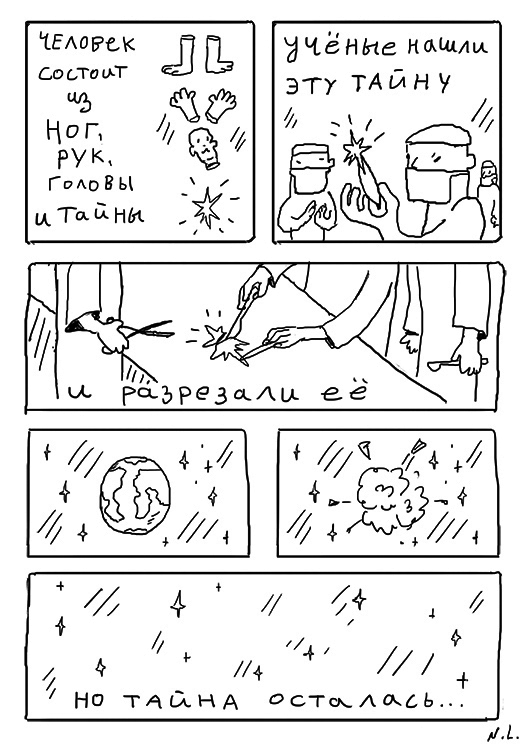 ЧЕЛОВЕК
СОСТОИТ
из
НОГ,
РУК,
ГОЛОВЫ
и ТАЙНЫ
УЧЁНЫЕ НАШЛИ
ЭТУ ТАЙНУ
и разрезали её
НО ТАЙНА ОСТАЛАСЬ...
N.L.